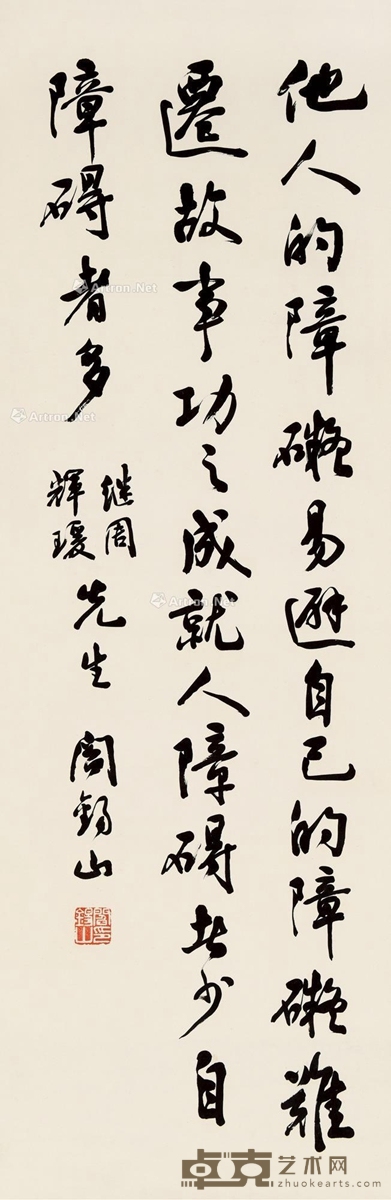 他人的障礙易避自己的障礙難
遷故事功之成就人障碍者少自
障碍者多
继周
輝瑗
先生
閻錫山
閻錫山印
Artron.Net
Artron.Net
Artron.Net
Artron.Net
卓克艺术网
zhuokearts.com